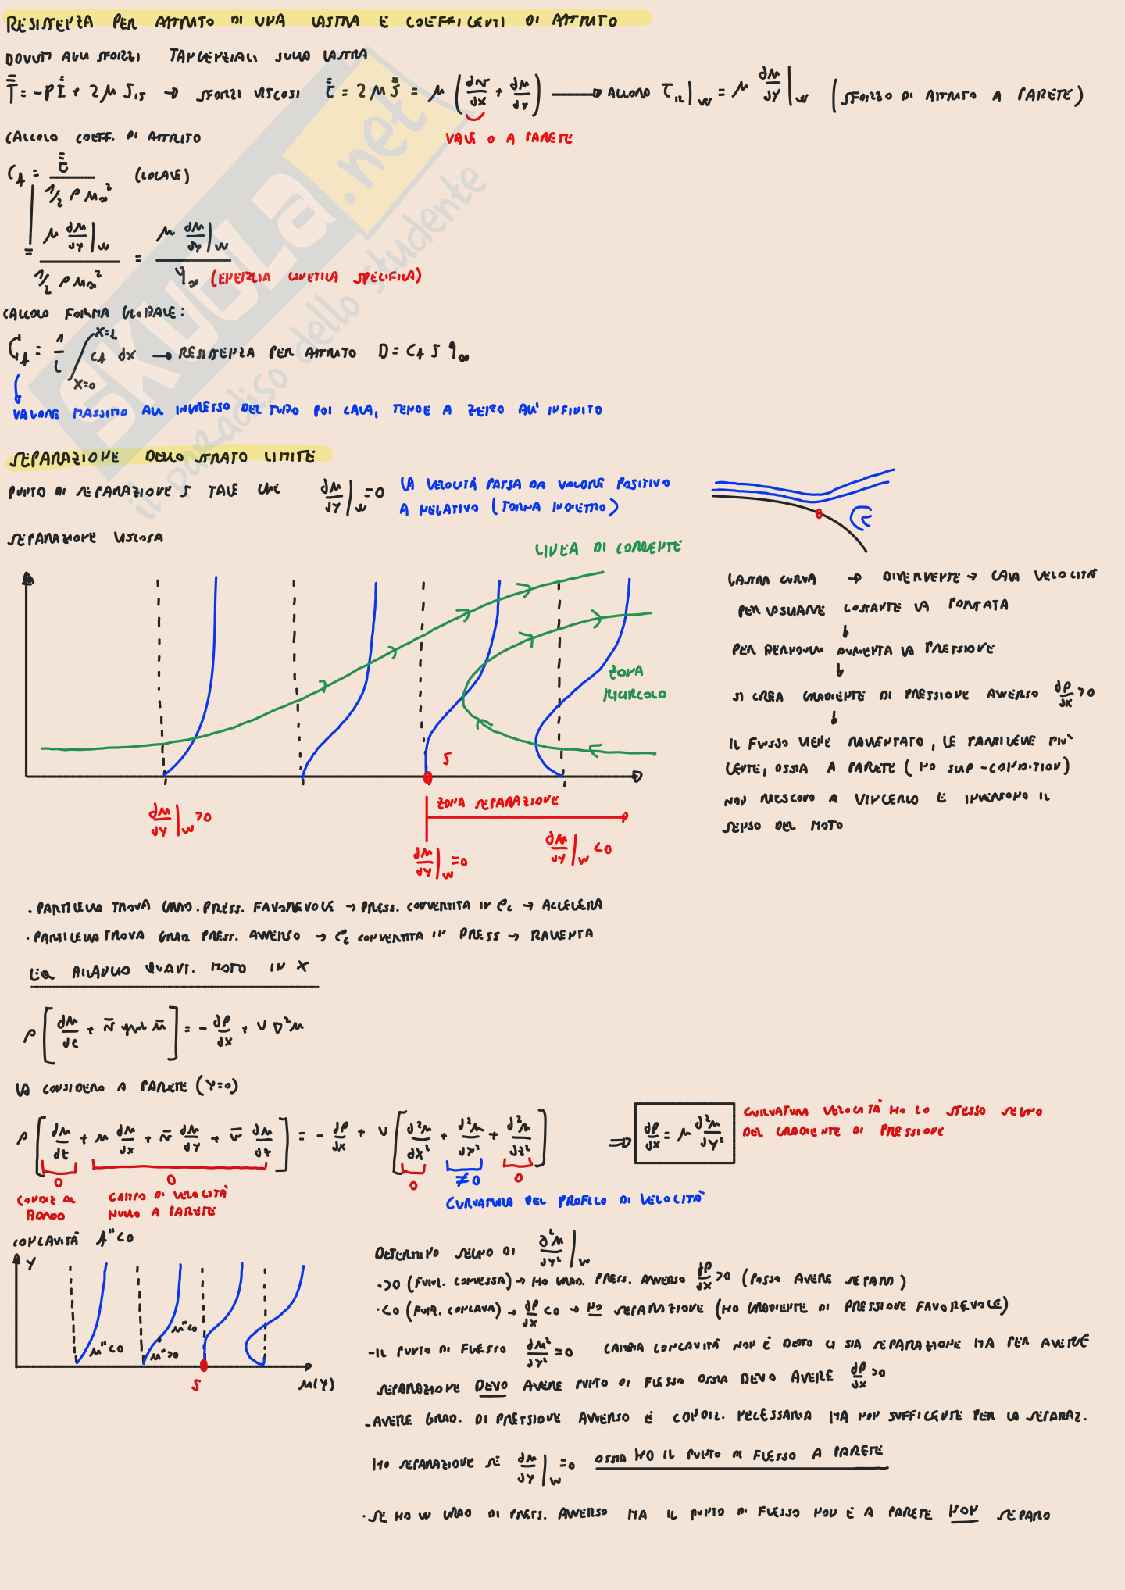 RESISTENZA PER ATTRITO DI UNA LASTRA E COEFFICENTI DI ATTRITO
DOVUTI AGLI SFORZI TANGENZIALI SULLA LASTRA
T = -PI + 2μ S_ij → SFORZI VISCOSI τ = 2μS = μ (dv/dx + du/dy) → ALLORA τ12|w = μ du/dy|w (SFORZO DI ATTRITO A PARETE)
VALE 0 A PARETE
CALCOLO COEFF. DI ATTRITO
Cf = τ / 1/2 ρ u∞² (LOCALE)
= μ du/dy|w / 1/2 ρ u∞² = μ du/dy|w / q∞ (ENERGIA CINETICA SPECIFICA)
CALCOLO FORMA GLOBALE:
Cf = 1/L ∫ x=0 x=L cf dx → RESISTENZA PER ATTRITO D = Cf S q∞
VALORE MASSIMO ALL'INGRESSO DEL TUBO POI CALA, TENDE A ZERO ALL'INFINITO
SEPARAZIONE DELLO STRATO LIMITE
PUNTO DI SEPARAZIONE S TALE CHE du/dy|w = 0 LA VELOCITÀ PASSA DA VALORE POSITIVO
A NEGATIVO (TORNA INDIETRO)
SEPARAZIONE VISCOSA
LINEA DI CORRENTE
ZONA
RICIRCOLO
S
du/dy|w > 0
ZONA SEPARAZIONE
du/dy|w = 0
du/dy|w < 0
LASTRA CURVA → DIVERGENTE → CALA VELOCITÀ
PER LASCIARE COSTANTE LA PORTATA
↓
PER BERNOULLI AUMENTA LA PRESSIONE
↓
SI CREA GRADIENTE DI PRESSIONE AVVERSO dp/dx > 0
↓
IL FLUSSO VIENE RALLENTATO, LE PARTICELLE PIU'
LENTE, OSSIA A PARETE (NO SLIP-CONDITION)
NON RIESCONO A VINCERLO E INVERTONO IL
SENSO DEL MOTO
· PARTICELLA TROVA GRAD. PRESS. FAVOREVOLE → PRESS. CONVERTITA IN Ec → ACCELERA
· PARTICELLA TROVA GRAD. PRESS. AVVERSO → Ec CONVERTITA IN PRESS → RALLENTA
EQ. BILANCIO QUANT. MOTO IN X
ρ [du/dt + v grad u] = - dp/dx + ν ∇²u
LA CONSIDERO A PARETE (Y=0)
ρ [du/dt + u du/dx + v du/dy + w du/dz] = - dp/dx + ν [d²u/dx² + d²u/dy² + d²u/dz²] ⇒ dp/dx = μ d²u/dy²
CURVATURA VELOCITÀ HA LO STESSO SEGNO
DEL GRADIENTE DI PRESSIONE
0 0 0 ≠0 0
CONDIZ AL
BORDO
CAMPO DI VELOCITÀ
NULLO A PARETE
CURVATURA DEL PROFILO DI VELOCITÀ
CONCAVITÀ f''<0
Y
u''<0
u''<0
u''>0
S
u(Y)
DETERMINO SEGNO DI ∂²u/∂y²|w
· >0 (FUNZ. CONVESSA) → HO GRAD. PRESS. AVVERSO dp/dx > 0 (POSSO AVERE SEPARAZ)
· <0 (FUNZ. CONCAVA) → dp/dx < 0 → NO SEPARAZIONE (HO GRADIENTE DI PRESSIONE FAVOREVOLE)
- IL PUNTO DI FLESSO du²/dy² = 0 CAMBIA CONCAVITÀ NON È DETTO CI SIA SEPARAZIONE MA PER AVERE
SEPARAZIONE DEVO AVERE PUNTO DI FLESSO OSSIA DEVO AVERE dp/dx > 0
- AVERE GRAD. DI PRESSIONE AVVERSO È CONDIZ. NECESSARIA MA NON SUFFICENTE PER LA SEPARAZ.
HO SEPARAZIONE SE du/dy|w = 0 OSSIA HO IL PUNTO DI FLESSO A PARETE
· SE HO UN GRAD DI PRESS. AVVERSO MA IL PUNTO DI FLESSO NON È A PARETE NON SEPARO
SKUOLA.net
il paradiso dello studente